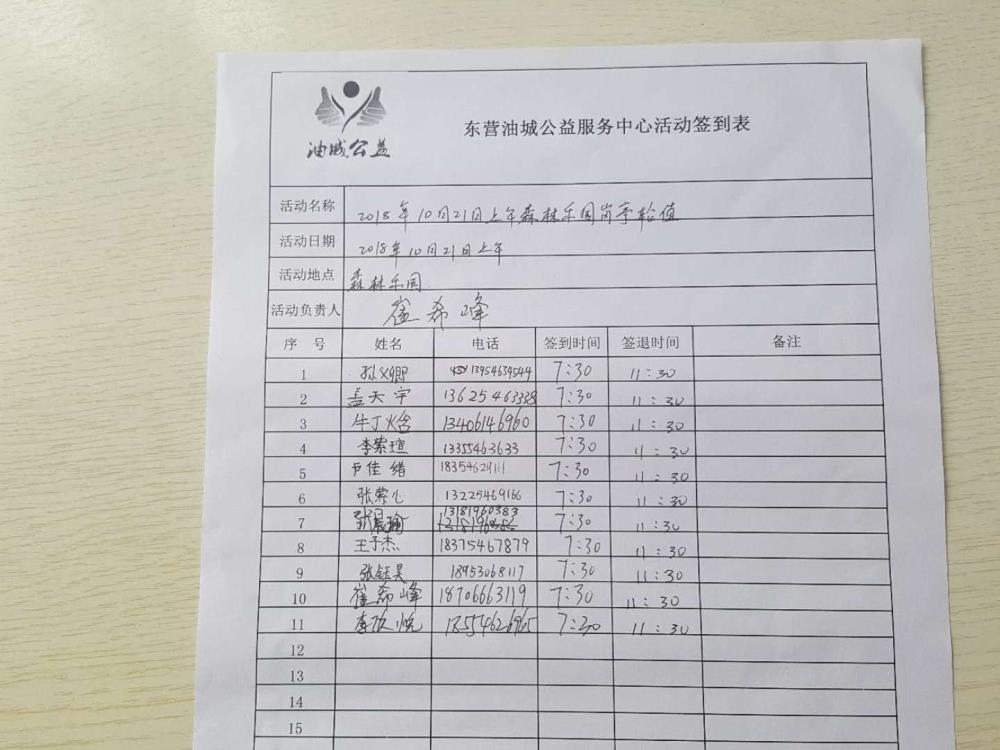 油城公益
东营油城公益服务中心活动签到表
活动名称 2018年10月21日上午森林乐园岗亭轮值
活动日期 2018年10月21日上午
活动地点 森林乐园
活动负责人 崔希峰
序号 姓名 电话 签到时间 签退时间 备注
1 孙义卿 13954634544 7:30 11:30
2 盖天宇 13625463338 7:30 11:30
3 牛丁火含 13406146960 7:30 11:30
4 李崇瑄 13355463633 7:30 11:30
5 卢佳绪 18354629111 7:30 11:30
6 张荣心 13225469166 7:30 11:30
7 13181960383 7:30 11:30
8 王子杰 18375467879 7:30 11:30
9 张钰昊 18953068117 7:30 11:30
10 崔希峰 18706663119 7:30 11:30
11 李玖悦 18554626965 7:30 11:30
12
13
14
15